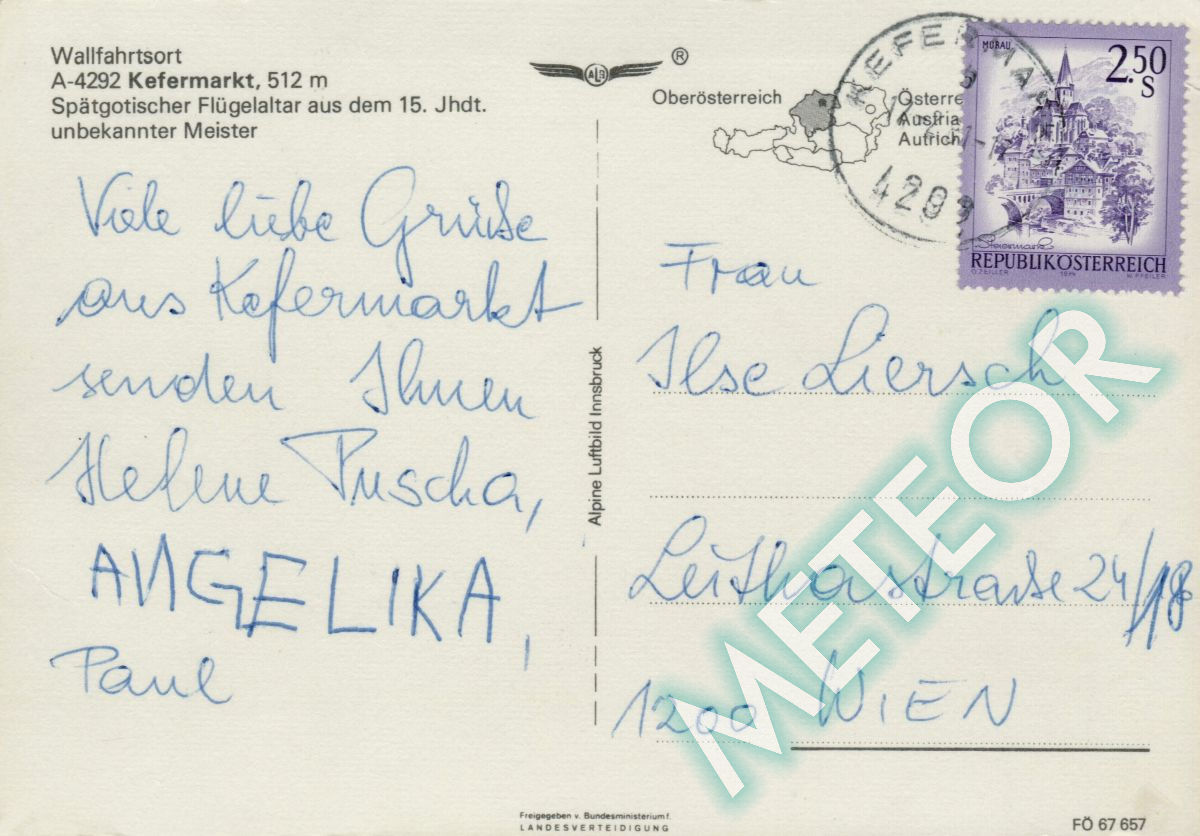 Wallfahrtsort
A-4292 Kefermarkt, 512 m
Spätgotischer Flügelaltar aus dem 15. Jhdt.
unbekannter Meister
Viele liebe Grüße
aus Kefermarkt
senden Ihnen
Helene Puscha,
ANGELIKA,
Paul
ALB
®
Oberösterreich
Österre
Austria
Autrich
KEFERMARKT
MURAU
2.50
S
Steiermark
REPUBLIK ÖSTERREICH
O. ZEILLER 1974 W. PFEILER
Frau
Ilse Liersch
Leithastraße 24/18
1200 WIEN
Alpine Luftbild Innsbruck
METEOR
Freigegeben v. Bundesministerium f.
LANDESVERTEIDIGUNG
FÖ 67 657